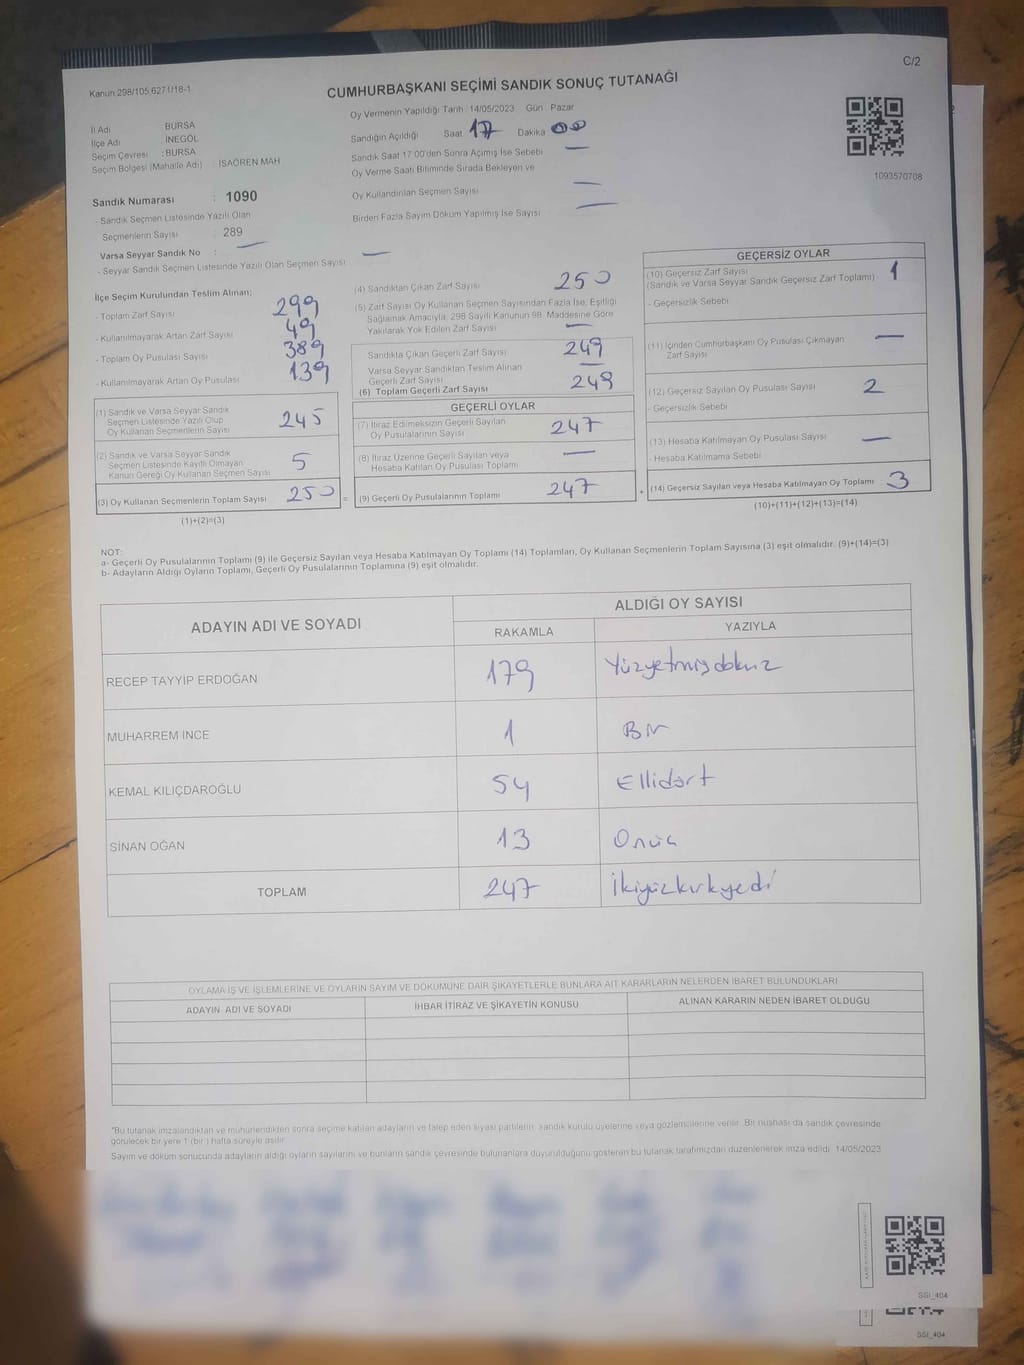 C/2
Kanun:298/105,6271/18-1
CUMHURBAŞKANI SEÇİMİ SANDIK SONUÇ TUTANAĞI
İl Adı BURSA
İlçe Adı İNEGÖL
Seçim Çevresi : BURSA
Seçim Bölgesi (Mahalle Adı) : İSAÖREN MAH
Sandık Numarası : 1090
- Sandık Seçmen Listesinde Yazılı Olan
Seçmenlerin Sayısı : 289
Varsa Seyyar Sandık No : —
- Seyyar Sandık Seçmen Listesinde Yazılı Olan Seçmen Sayısı: —
Oy Vermenin Yapıldığı Tarih :14/05/2023 Gün : Pazar
Sandığın Açıldığı Saat 17 Dakika 00
Sandık Saat 17:00'den Sonra Açımış İse Sebebi —
Oy Verme Saati Bitiminde Sırada Bekleyen ve
Oy Kullandırılan Seçmen Sayısı —
Birden Fazla Sayım Döküm Yapılmış İse Sayısı —
1093570708
İlçe Seçim Kurulundan Teslim Alınan;
- Toplam Zarf Sayısı 299
- Kullanılmayarak Artan Zarf Sayısı 49
- Toplam Oy Pusulası Sayısı 389
- Kullanılmayarak Artan Oy Pusulası 139
(1) Sandık ve Varsa Seyyar Sandık
Seçmen Listesinde Yazılı Olup
Oy Kullanan Seçmenlerin Sayısı 245
(2) Sandık ve Varsa Seyyar Sandık
Seçmen Listesinde Kayıtlı Olmayan
Kanun Gereği Oy Kullanan Seçmen Sayısı 5
(3) Oy Kullanan Seçmenlerin Toplam Sayısı 250
(1)+(2)=(3)
(4) Sandıktan Çıkan Zarf Sayısı 250
(5) Zarf Sayısı Oy Kullanan Seçmen Sayısından Fazla İse; Eşitliği
Sağlamak Amacıyla; 298 Sayılı Kanunun 98. Maddesine Göre
Yakılarak Yok Edilen Zarf Sayısı —
Sandıkta Çıkan Geçerli Zarf Sayısı 249
Varsa Seyyar Sandıktan Teslim Alınan
Geçerli Zarf Sayısı —
(6) Toplam Geçerli Zarf Sayısı 249
GEÇERLİ OYLAR
(7) İtiraz Edilmeksizin Geçerli Sayılan
Oy Pusulalarının Sayısı 247
(8) İtiraz Üzerine Geçerli Sayılan veya
Hesaba Katılan Oy Pusulası Toplamı —
(9) Geçerli Oy Pusulalarının Toplamı 247
GEÇERSİZ OYLAR
(10) Geçersiz Zarf Sayısı
(Sandık ve Varsa Seyyar Sandık Geçersiz Zarf Toplamı) 1
- Geçersizlik Sebebi
(11) İçinden Cumhurbaşkanı Oy Pusulası Çıkmayan
Zarf Sayısı —
(12) Geçersiz Sayılan Oy Pusulası Sayısı 2
- Geçersizlik Sebebi
(13) Hesaba Katılmayan Oy Pusulası Sayısı —
- Hesaba Katılmama Sebebi
(14) Geçersiz Sayılan veya Hesaba Katılmayan Oy Toplamı 3
(10)+(11)+(12)+(13)=(14)
NOT:
a- Geçerli Oy Pusulalarının Toplamı (9) ile Geçersiz Sayılan veya Hesaba Katılmayan Oy Toplamı (14) Toplamları, Oy Kullanan Seçmenlerin Toplam Sayısına (3) eşit olmalıdır. (9)+(14)=(3)
b- Adayların Aldığı Oyların Toplamı, Geçerli Oy Pusulalarının Toplamına (9) eşit olmalıdır.
ADAYIN ADI VE SOYADI ALDIĞI OY SAYISI
RAKAMLA YAZIYLA
RECEP TAYYİP ERDOĞAN 179 Yüzyetmişdokuz
MUHARREM İNCE 1 Bir
KEMAL KILIÇDAROĞLU 54 Ellidört
SİNAN OĞAN 13 Onüç
TOPLAM 247 İkiyüzkırkyedi
OYLAMA İŞ VE İŞLEMLERİNE VE OYLARIN SAYIM VE DÖKÜMÜNE DAİR ŞİKAYETLERLE BUNLARA AİT KARARLARIN NELERDEN İBARET BULUNDUKLARI
ADAYIN ADI VE SOYADI İHBAR İTİRAZ VE ŞİKAYETİN KONUSU ALINAN KARARIN NEDEN İBARET OLDUĞU
"Bu tutanak imzalandıktan ve mühürlendikten sonra seçime katılan adayların ve talep eden siyasi partilerin sandık kurulu üyelerine veya gözlemcilerine verilir. Bir nüshası da sandık çevresinde
görülecek bir yere 1 (bir ) hafta süreyle asılır.
Sayım ve döküm sonucunda adayların aldığı oyların sayılarını ve bunların sandık çevresinde bulunanlara duyurulduğunu gösteren bu tutanak tarafımızdan düzenlenerek imza edildi. 14/05/2023
SSI_404
SSI_404